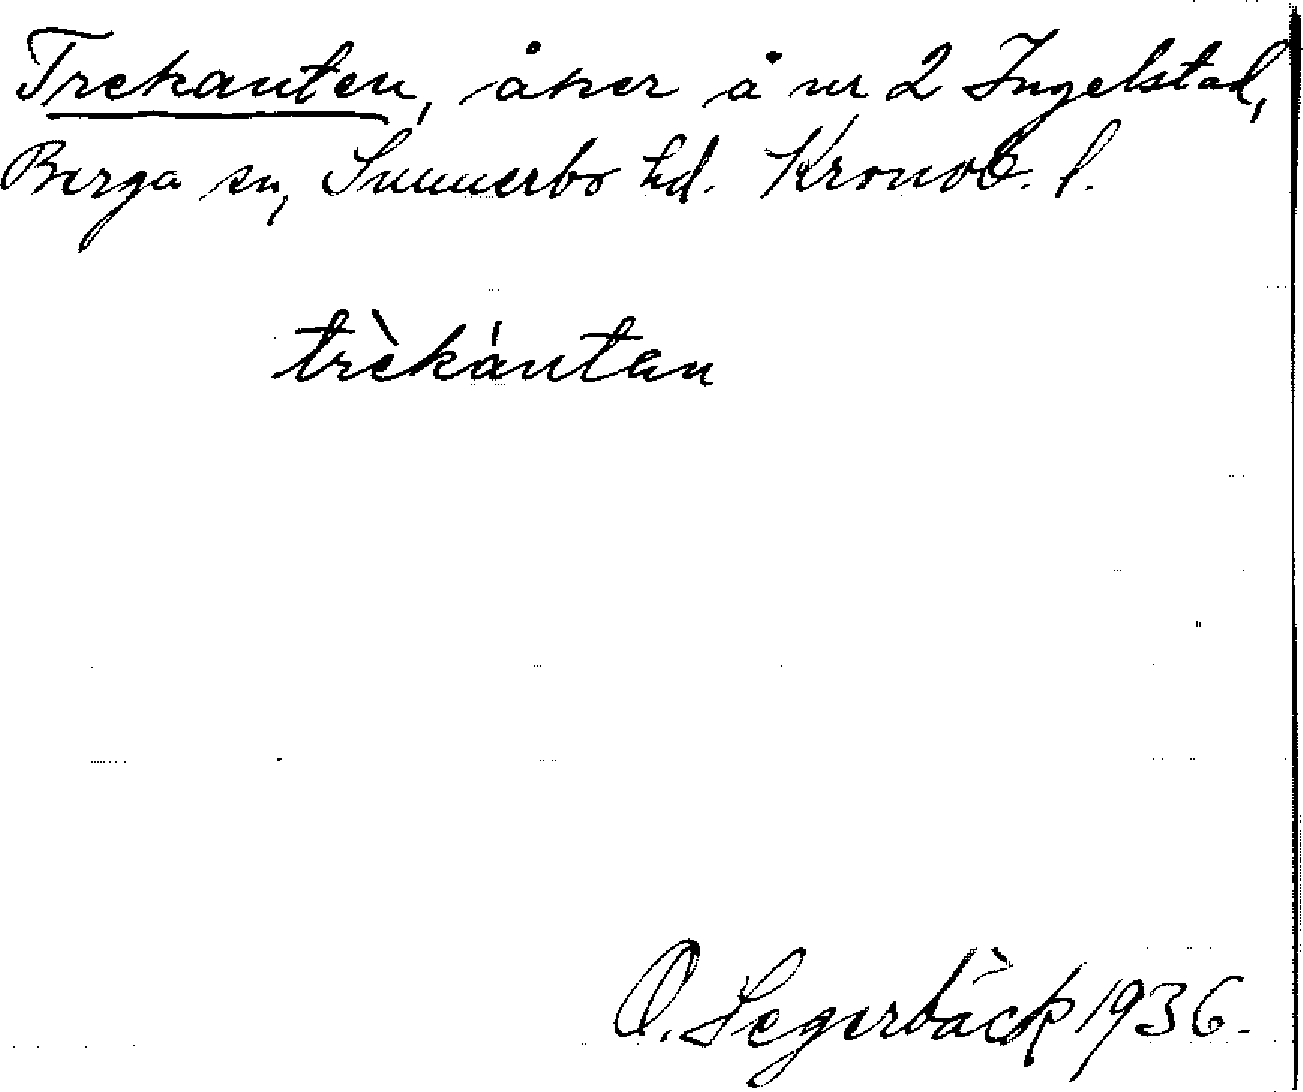 Trekanten, åker å nr 2 Ingelstad,
Berga sn, Sunnerbo hd. Kronob. l.
trèkántan
O. Segerbäck 1936.